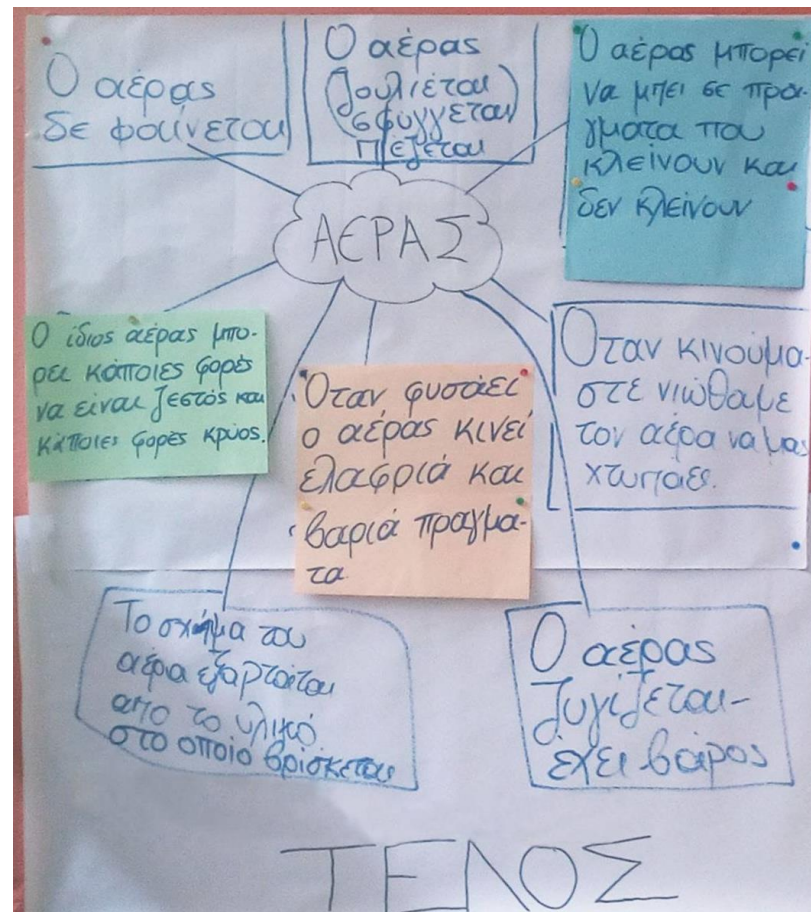 Ο αέρας
δε φαίνεται
Ο αέρας
ζουλιέται
σφύγγεται
πιέζεται
Ο αέρας μπορεί
να μπει σε πρά-
γματα που
κλείνουν και
δεν κλείνουν
ΑΕΡΑΣ
Ο ίδιος αέρας μπο-
ρει κάποιες φορές
να είναι ζεστός και
κάποιες φορές κρύος.
Όταν φυσάει
ο αέρας κινεί
ελαφριά και
βαριά πραγμα-
τα
Όταν κινούμα-
στε νιώθαμε
τον αέρα να μας
χτυπάει.
Το σχήμα του
αέρα εξαρτάται
απο το υλικό
στο οποίο βρίσκεται
Ο αέρας
ζυγίζεται-
έχει βάρος
ΤΕΛΟΣ